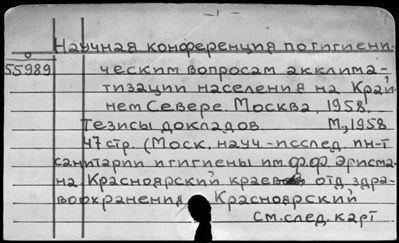 - 1 -
Научная конференция по гигиени-
55989 ческим вопросам акклима-
тизации населения на Край-
нем Севере. Москва, 1958.
Тезисы докладов. М., 1958
47 стр. (Моск. науч.-исслед. ин-т
санитарии и гигиены им. Ф.Ф. Эрисма-
на. Красноярский краев отд. здра-
воохранения. Красноярский
см. след. карт